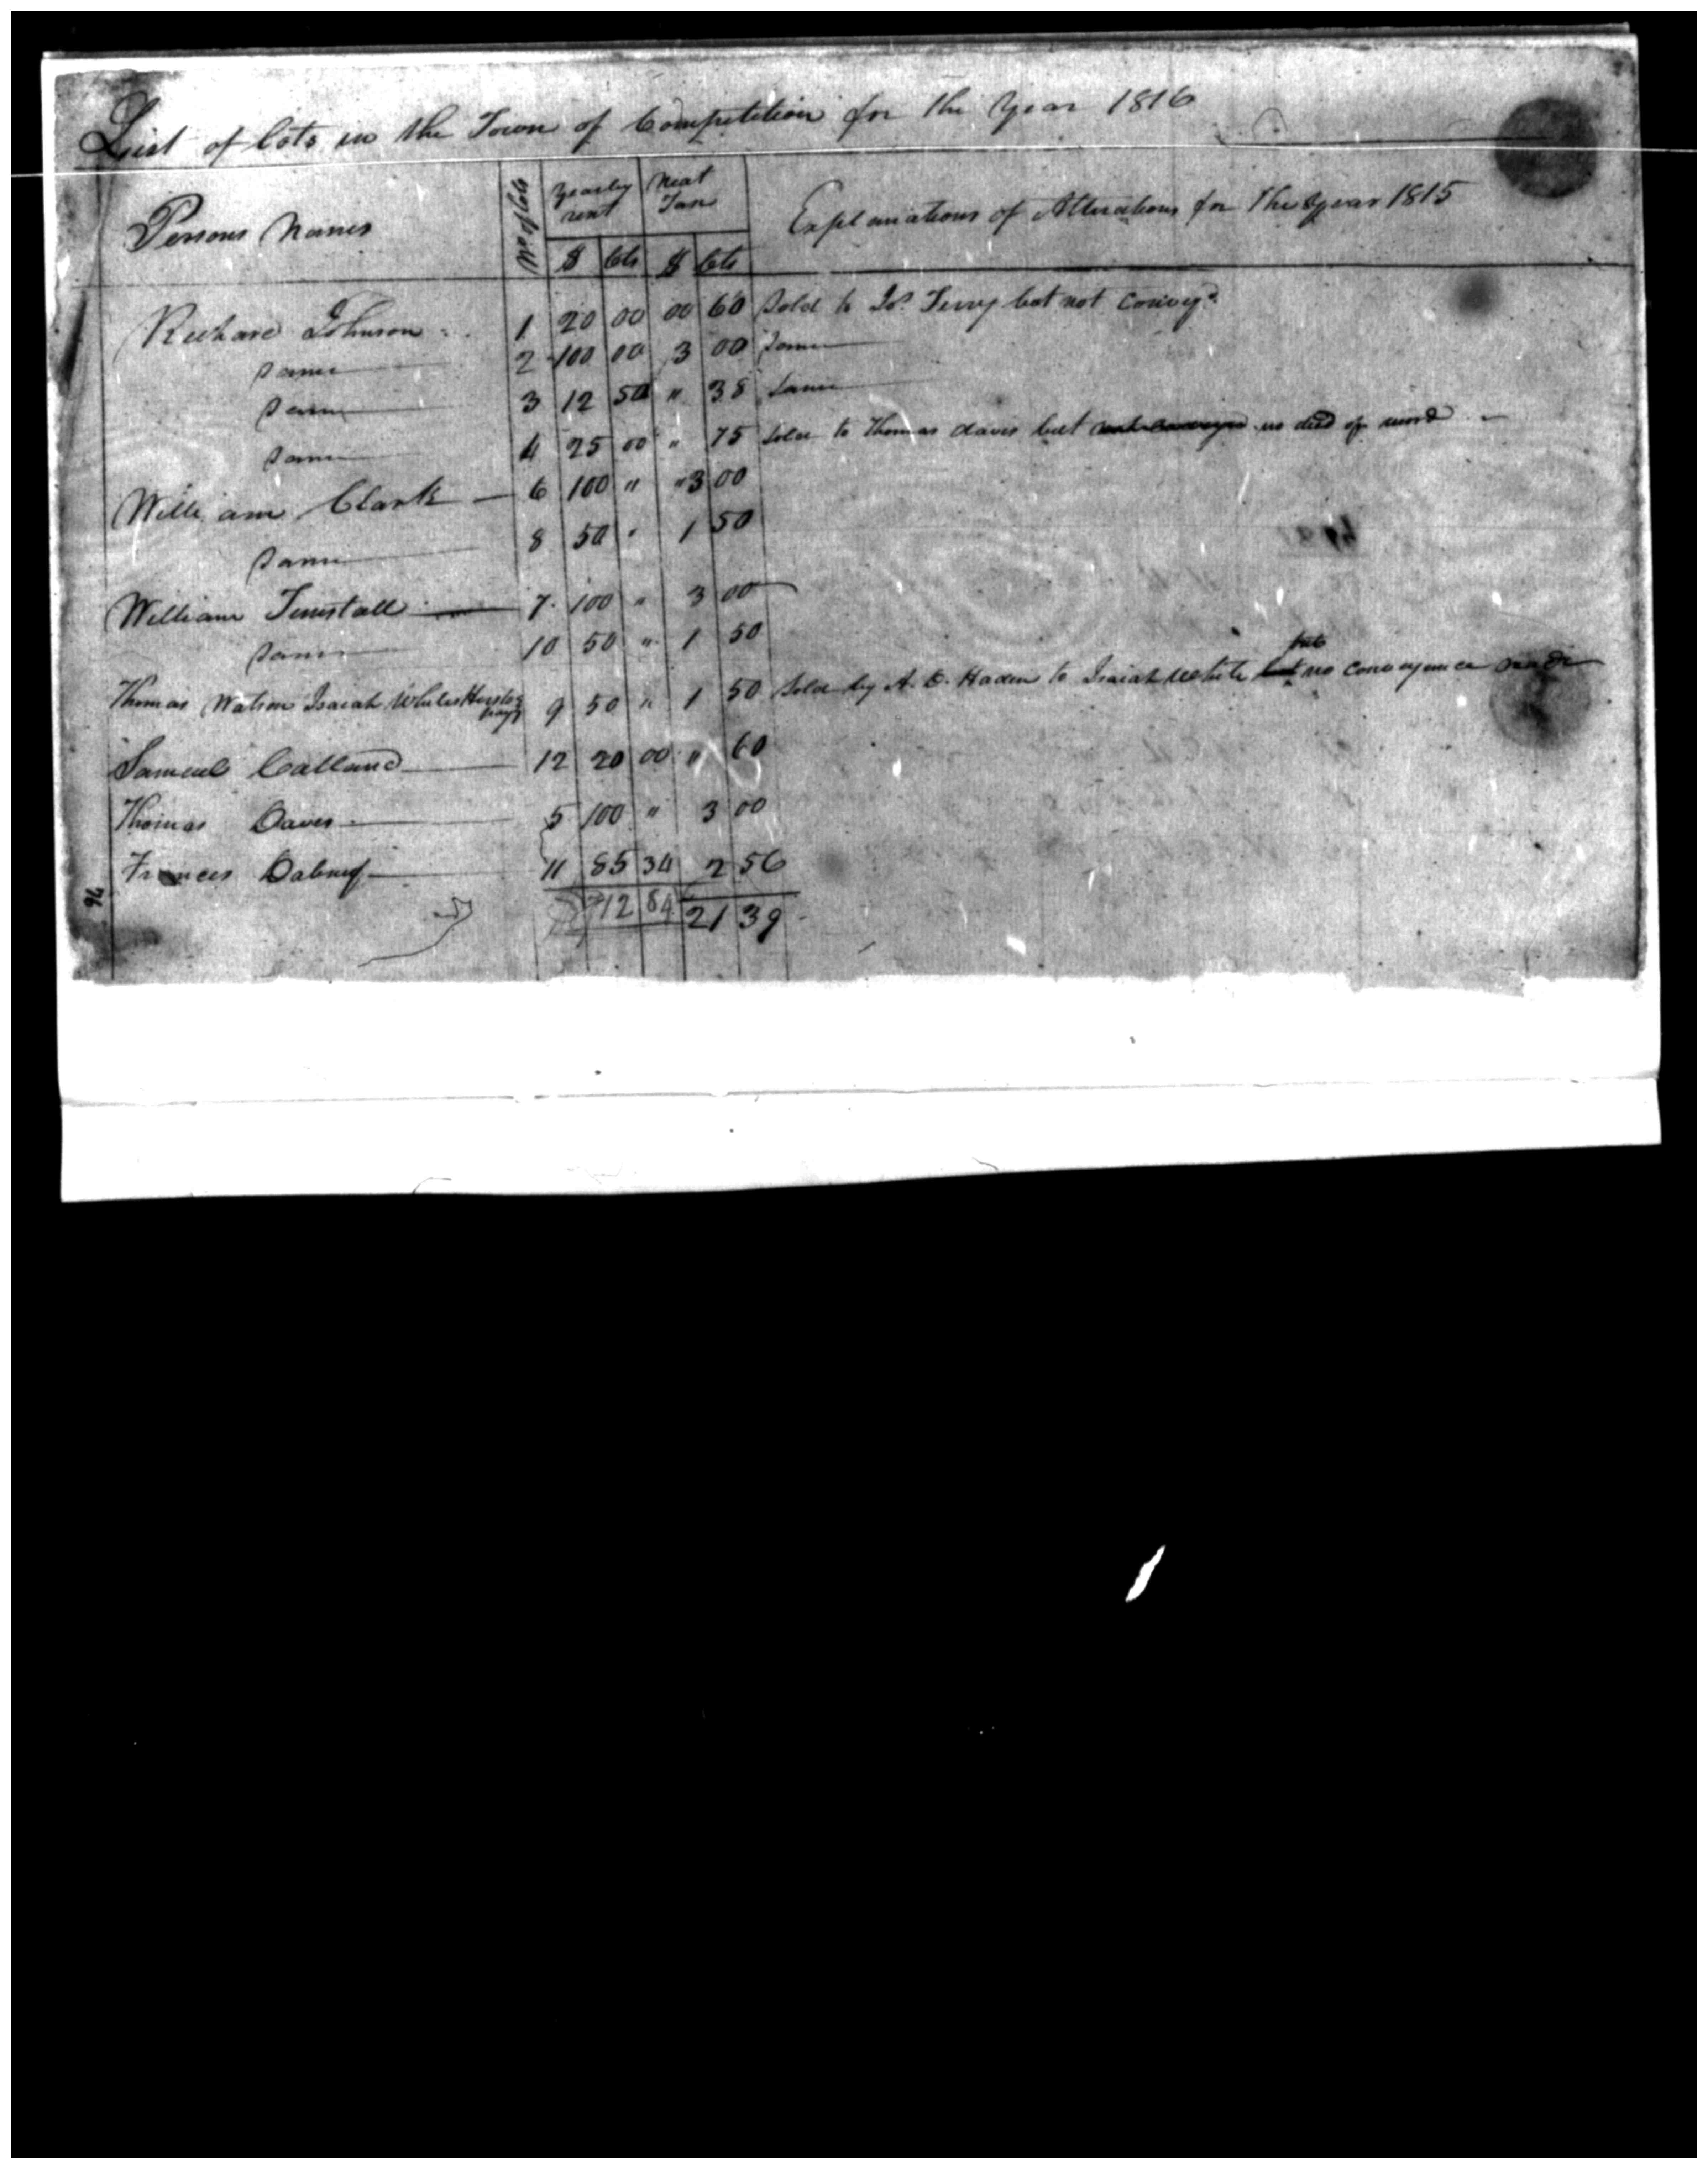 List of lots in the Town of Competition for the Year 1816
Persons Names No of lots yearly rent Neat Tax Explanations of Alterations for the year 1815
$ Cts $ Cts
Richard Johnson 1 20 00 00 60 Sold to Jos. Terry but not Convey.d
Same 2 100 00 3 00 Same
Same 3 12 50 " 38 Same
Same 4 25 00 " 75 Sold to Thomas Davis but no deed of
William Clark 6 100 " " 3 00
Same 8 50 " 1 50
William Tunstall 7 100 " 3 00
Same 10 50 " 1 50
Thomas Watson Isaiah White 9 50 " 1 50 Sold by A. D. Haden to Isaiah White but no conveyance made
Samuel Calland 12 20 00 " 60
Thomas Davis 5 100 " 3 00
Frances Dabney 11 85 34 2 56
712 84 21 39